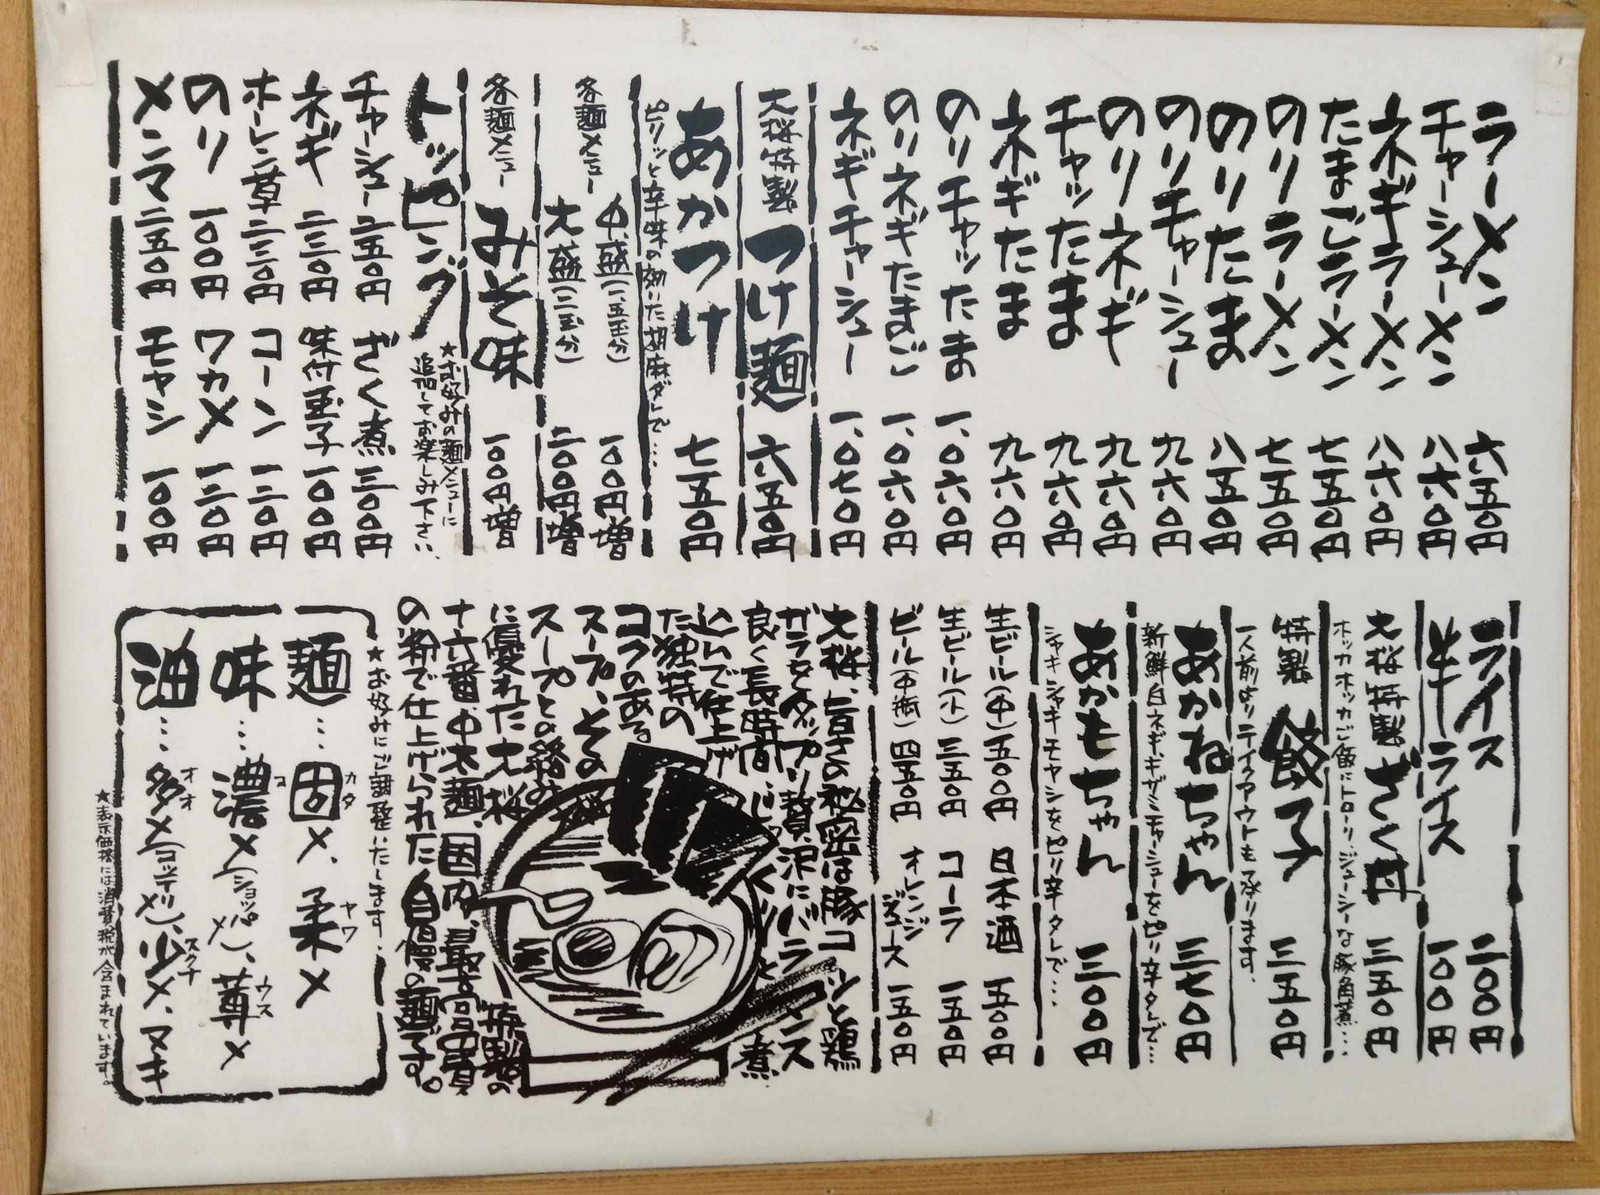 ラーメン 六五〇円
チャーシューメン 八六〇円
ネギラーメン 八六〇円
たまごラーメン 七五〇円
のりラーメン 七五〇円
のりたま 八五〇円
のりチャーシュー 九六〇円
のりネギ 九六〇円
チャッたま 九六〇円
ネギたま 九六〇円
のりチャッたま 一、〇六〇円
のりネギたまご 一、〇六〇円
ネギチャーシュー 一、〇七〇円
大桜特製 つけ麺 六五〇円
あかつけ 七五〇円
ピリッと辛味の効いた胡麻ダレで…
各麺メニュー 中盛(一、五玉分) 一〇〇円増
大盛(二玉分) 二〇〇円増
各麺メニュー みそ味 一〇〇円増
トッピング ★お好みの麺メニューに
追加してお楽しみ下さい。
チャーシュー 二五〇円 ざく煮 三〇〇円
ネギ 二三〇円 味付玉子 一〇〇円
ホーレン草 二三〇円 コーン 一三〇円
のり 一〇〇円 ワカメ 一三〇円
メンマ 二五〇円 モヤシ 一〇〇円
ライス 二〇〇円
半ライス 一〇〇円
大桜特製 ざく丼 三五〇円
ホッカホッカご飯にトローリ、ジューシーな豚角煮…
特製 餃子 三五〇円
一人前よりテイクアウトも承ります。
あかねちゃん 三七〇円
新鮮白ネギ、ギザミチャーシューをピリ辛タレで…
あかもちゃん 三〇〇円
シャキシャキモヤシをピリ辛タレで…
生ビール(中) 五〇〇円 日本酒 五〇〇円
生ビール(小) 三五〇円 コーラ 一五〇円
ビール(中瓶) 四五〇円 オレンジジュース 一五〇円
大桜、旨さの秘密は豚コツと鶏
ガラをタップリ贅沢にバランス
良く長時間、じっくりと煮
込んで仕上げ
た独特の
コクのある
スープ、その
スープとの絡み
に優れた大桜特製の
十六番、中太麺、国内最高品質
の粉で仕上げられた自慢の麺です。
★お好みにご調整いたします。
麺…固メ、柔メ
カタ ヤワ
味…濃メ(ショッパメ)、薄メ
コ ウス
油…多メ(コッテリメ)、少メ、ヌキ
オオ スクナ
★表示価格には消費税が含まれています。